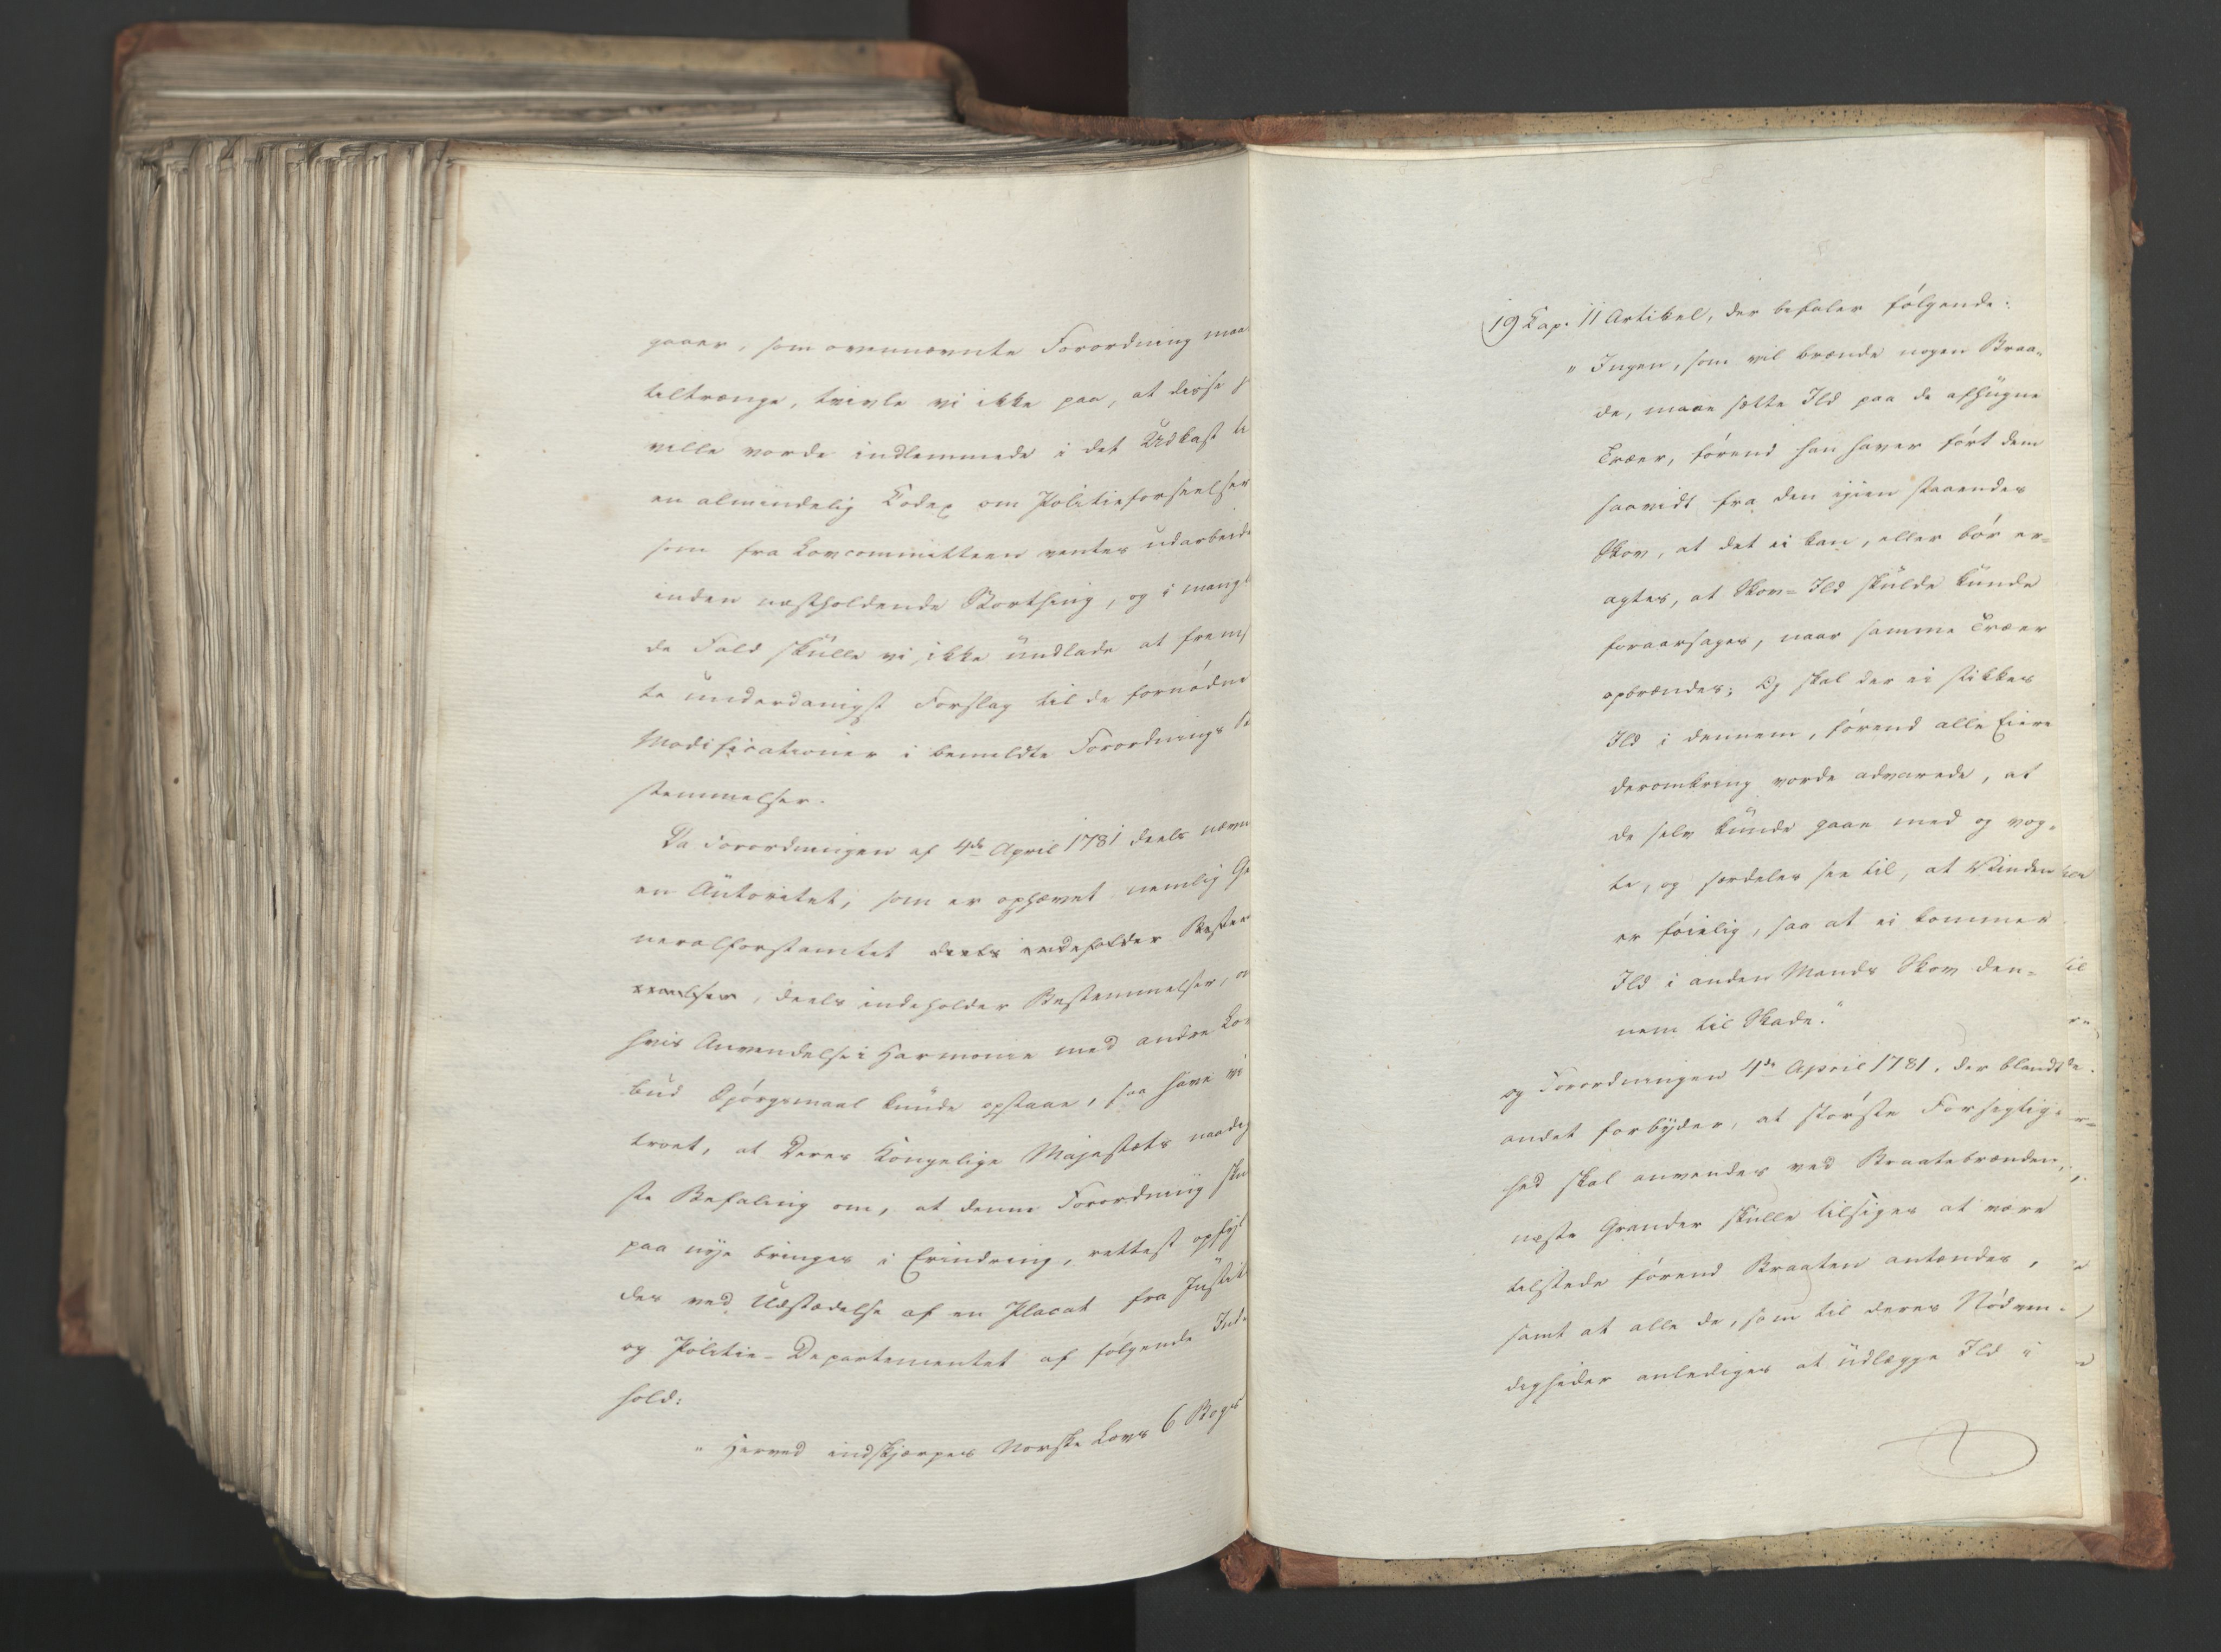 gaaer, som ovennævnte Forordning maa
tiltrænge, tvivle vi ikke paa, at disse
ville vorde indlemmede i det Udkast ti
en almindelig Codex om Politieforseelser
som fra Lovcommitteen ventes udarbeid
inden næstholdende Storthing, og i mang
de Fald skulle vi ikke undlade at frems
te underdanigst Forslag til de fornødne
Modificationer i bemeldte Forordnings
stemmelser.
Da Forordningen af 4de April 1781 deels nævn
en Autoritet, som er ophævet nemlig Ge
neralforstamtet deels indeholder Bestem
melser, deels indeholder Bestemmelser, o
hvis Anvendelse i Harmonie med andre Lov
bud Spörgsmaal kunde opstaae, saa have vi
troet, at Deres Kongelige Majestæts naadig
ste Befaling om, at denne Forordning sku
paa nye bringes i Erindring, rettest opfyl
des ved Udstædelse af en Placat fra Justit
og Politie-Departementet af fölgende Inde
hold:
"Herved indskjærpes Norske Lovs 6 Bogs
19 Cap. 11 Artikel, der befaler fölgende:
"Ingen, som vil brænde nogen Braa-
de, maae sætte Ild paa de afhugne
Træer, förend han haver fört dem
saavidt fra den igien staaendes
Skov, at det ei kan, eller bör er-
agtes, at Skov-Ild skulde kunde
foraarsages, naar samme Træer
opbrændes; Og skal der ei stikkes
Ild i dennem, förend alle Eiere
deromkring vorde advarede, at
de selv kunde gaae med og vog-
te, og særdeles see til, at Vinden
er föielig, saa at ei kommer
Ild i anden Mands Skov den-
nem til Skade."
og Forordningen 4de April 1781, der blandt
andet forbyder, at störste Forsigtig-
hed skal anvendes ved Braatebrænden,
næste Grander skulle tilsiges at være
tilstede förend Braaten antændes,
samt at alle de, som til deres Nödven-
digheder anlediges at udlægge Ild i